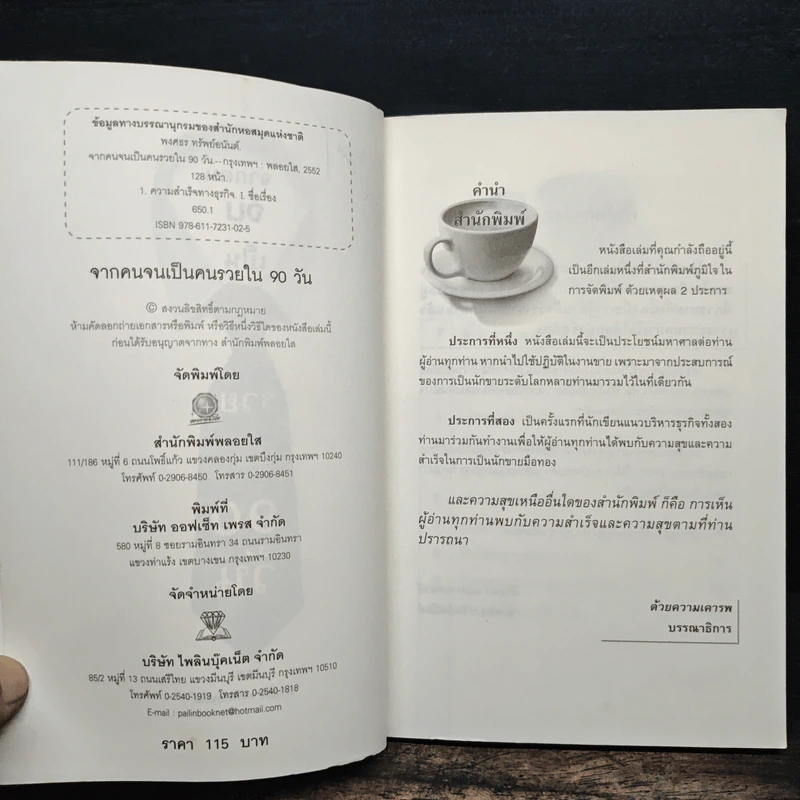 ข้อมูลทางบรรณานุกรมของสำนักหอสมุดแห่งชาติ
พงศธร ทรัพย์อนันต์.
จากคนจนเป็นคนรวยใน 90 วัน.--กรุงเทพฯ : พลอยใส, 2552
128 หน้า.
1. ความสำเร็จทางธุรกิจ. I. ชื่อเรื่อง
650.1
ISBN 978-611-7231-02-5
จากคนจนเป็นคนรวยใน 90 วัน
© สงวนลิขสิทธิ์ตามกฎหมาย
ห้ามคัดลอกถ่ายเอกสารหรือพิมพ์ หรือวิธีหนึ่งวิธีใดของหนังสือเล่มนี้
ก่อนได้รับอนุญาตจากทาง สำนักพิมพ์พลอยใส
จัดพิมพ์โดย
สำนักพิมพ์พลอยใส
111/186 หมู่ที่ 6 ถนนโพธิ์แก้ว แขวงคลองกุ่ม เขตบึงกุ่ม กรุงเทพฯ 10240
โทรศัพท์ 0-2906-8450 โทรสาร 0-2906-8451
พิมพ์ที่
บริษัท ออฟเซ็ท เพรส จำกัด
580 หมู่ที่ 8 ซอยรามอินทรา 34 ถนนรามอินทรา
แขวงท่าแร้ง เขตบางเขน กรุงเทพฯ 10230
จัดจำหน่ายโดย
บริษัท ไพลินบุ๊คเน็ต จำกัด
85/2 หมู่ที่ 13 ถนนเสรีไทย แขวงมีนบุรี เขตมีนบุรี กรุงเทพฯ 10510
โทรศัพท์ 0-2540-1919 โทรสาร 0-2540-1818
E-mail : pailinbooknet@hotmail.com
ราคา 115 บาท
คำนำ
สำนักพิมพ์
หนังสือเล่มที่คุณกำลังถืออยู่นี้
เป็นอีกเล่มหนึ่งที่สำนักพิมพ์ภูมิใจ ใน
การจัดพิมพ์ ด้วยเหตุผล 2 ประการ
ประการที่หนึ่ง หนังสือเล่มนี้จะเป็นประโยชน์มหาศาลต่อท่าน
ผู้อ่านทุกท่าน หากนำไปใช้ปฏิบัติในงานขาย เพราะมาจากประสบการณ์
ของการเป็นนักขายระดับโลกหลายท่านมารวมไว้ในที่เดียวกัน
ประการที่สอง เป็นครั้งแรกที่นักเขียนแนวบริหารธุรกิจทั้งสอง
ท่านมาร่วมกันทำงานเพื่อให้ผู้อ่านทุกท่านได้พบกับความสุขและความ
สำเร็จในการเป็นนักขายมือทอง
และความสุขเหนืออื่นใดของสำนักพิมพ์ ก็คือ การเห็น
ผู้อ่านทุกท่านพบกับความสำเร็จและความสุขตามที่ท่าน
ปรารถนา
ด้วยความเคารพ
บรรณาธิการ